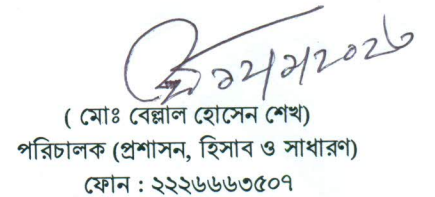 ( মোঃ বেল্লাল হোসেন শেখ)
পরিচালক (প্রশাসন, হিসাব ও সাধারণ)
ফোন : ২২২৬৬৬৩৫০৭